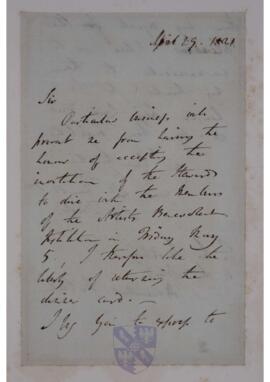 April 29. 1821
Sir
Particular business will
prevent me from having the
honor of accepting the
invitation of the Stewards
to dine with the Members
of the Artists Benevolent
Institution on Friday May
5, I therefore take the
liberty of returning the
dinner card. —
I beg you to express to